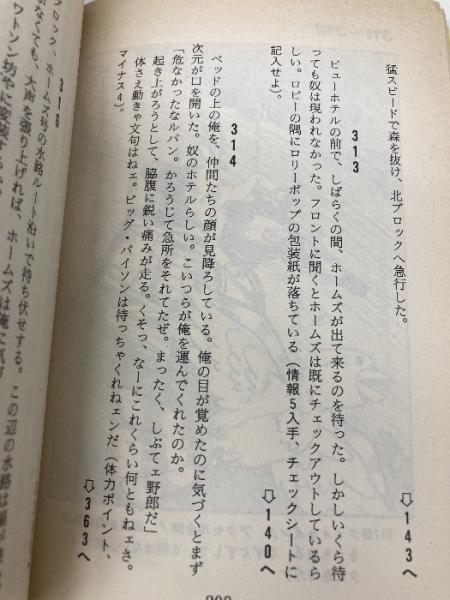 猛スピードで森を抜け、北ブロックへ急行した。
⇨143へ
313
ビューホテルの前で、しばらくの間、ホームズが出て来るのを待った。しかしいくら待
っても奴は現われなかった。フロントに聞くとホームズは既にチェックアウトしているら
しい。ロビーの隅にロリーポップの包装紙が落ちている（情報5入手、チェックシートに
記入せよ）。
⇨140へ
314
ベッドの上の俺を、仲間たちの顔が見降ろしている。俺の目が覚めたのに気づくとまず
次元が口を開いた。奴のホテルらしい。こいつらが俺を運んでくれたのか。
「危なかったなルパン。かろうじて急所をそれてたぜ。まったく、しぶてェ野郎だ」
起き上がろうとして、脇腹に鋭い痛みが走る。くそっ、なーにこれくらい何ともねェさ。
体さえ動きゃ文句はねェ。ビッグ・パイソンは待っちゃくれねェンだ（体力ポイント、
マイナス4）。
⇨363へ
316
ブロック、ホームズ号の水路ルート沿いで待ち伏せする。この辺の水路は
なくても、大声を張り上げれば、ホームズは俺に気が
ワトソン坊やに変装する